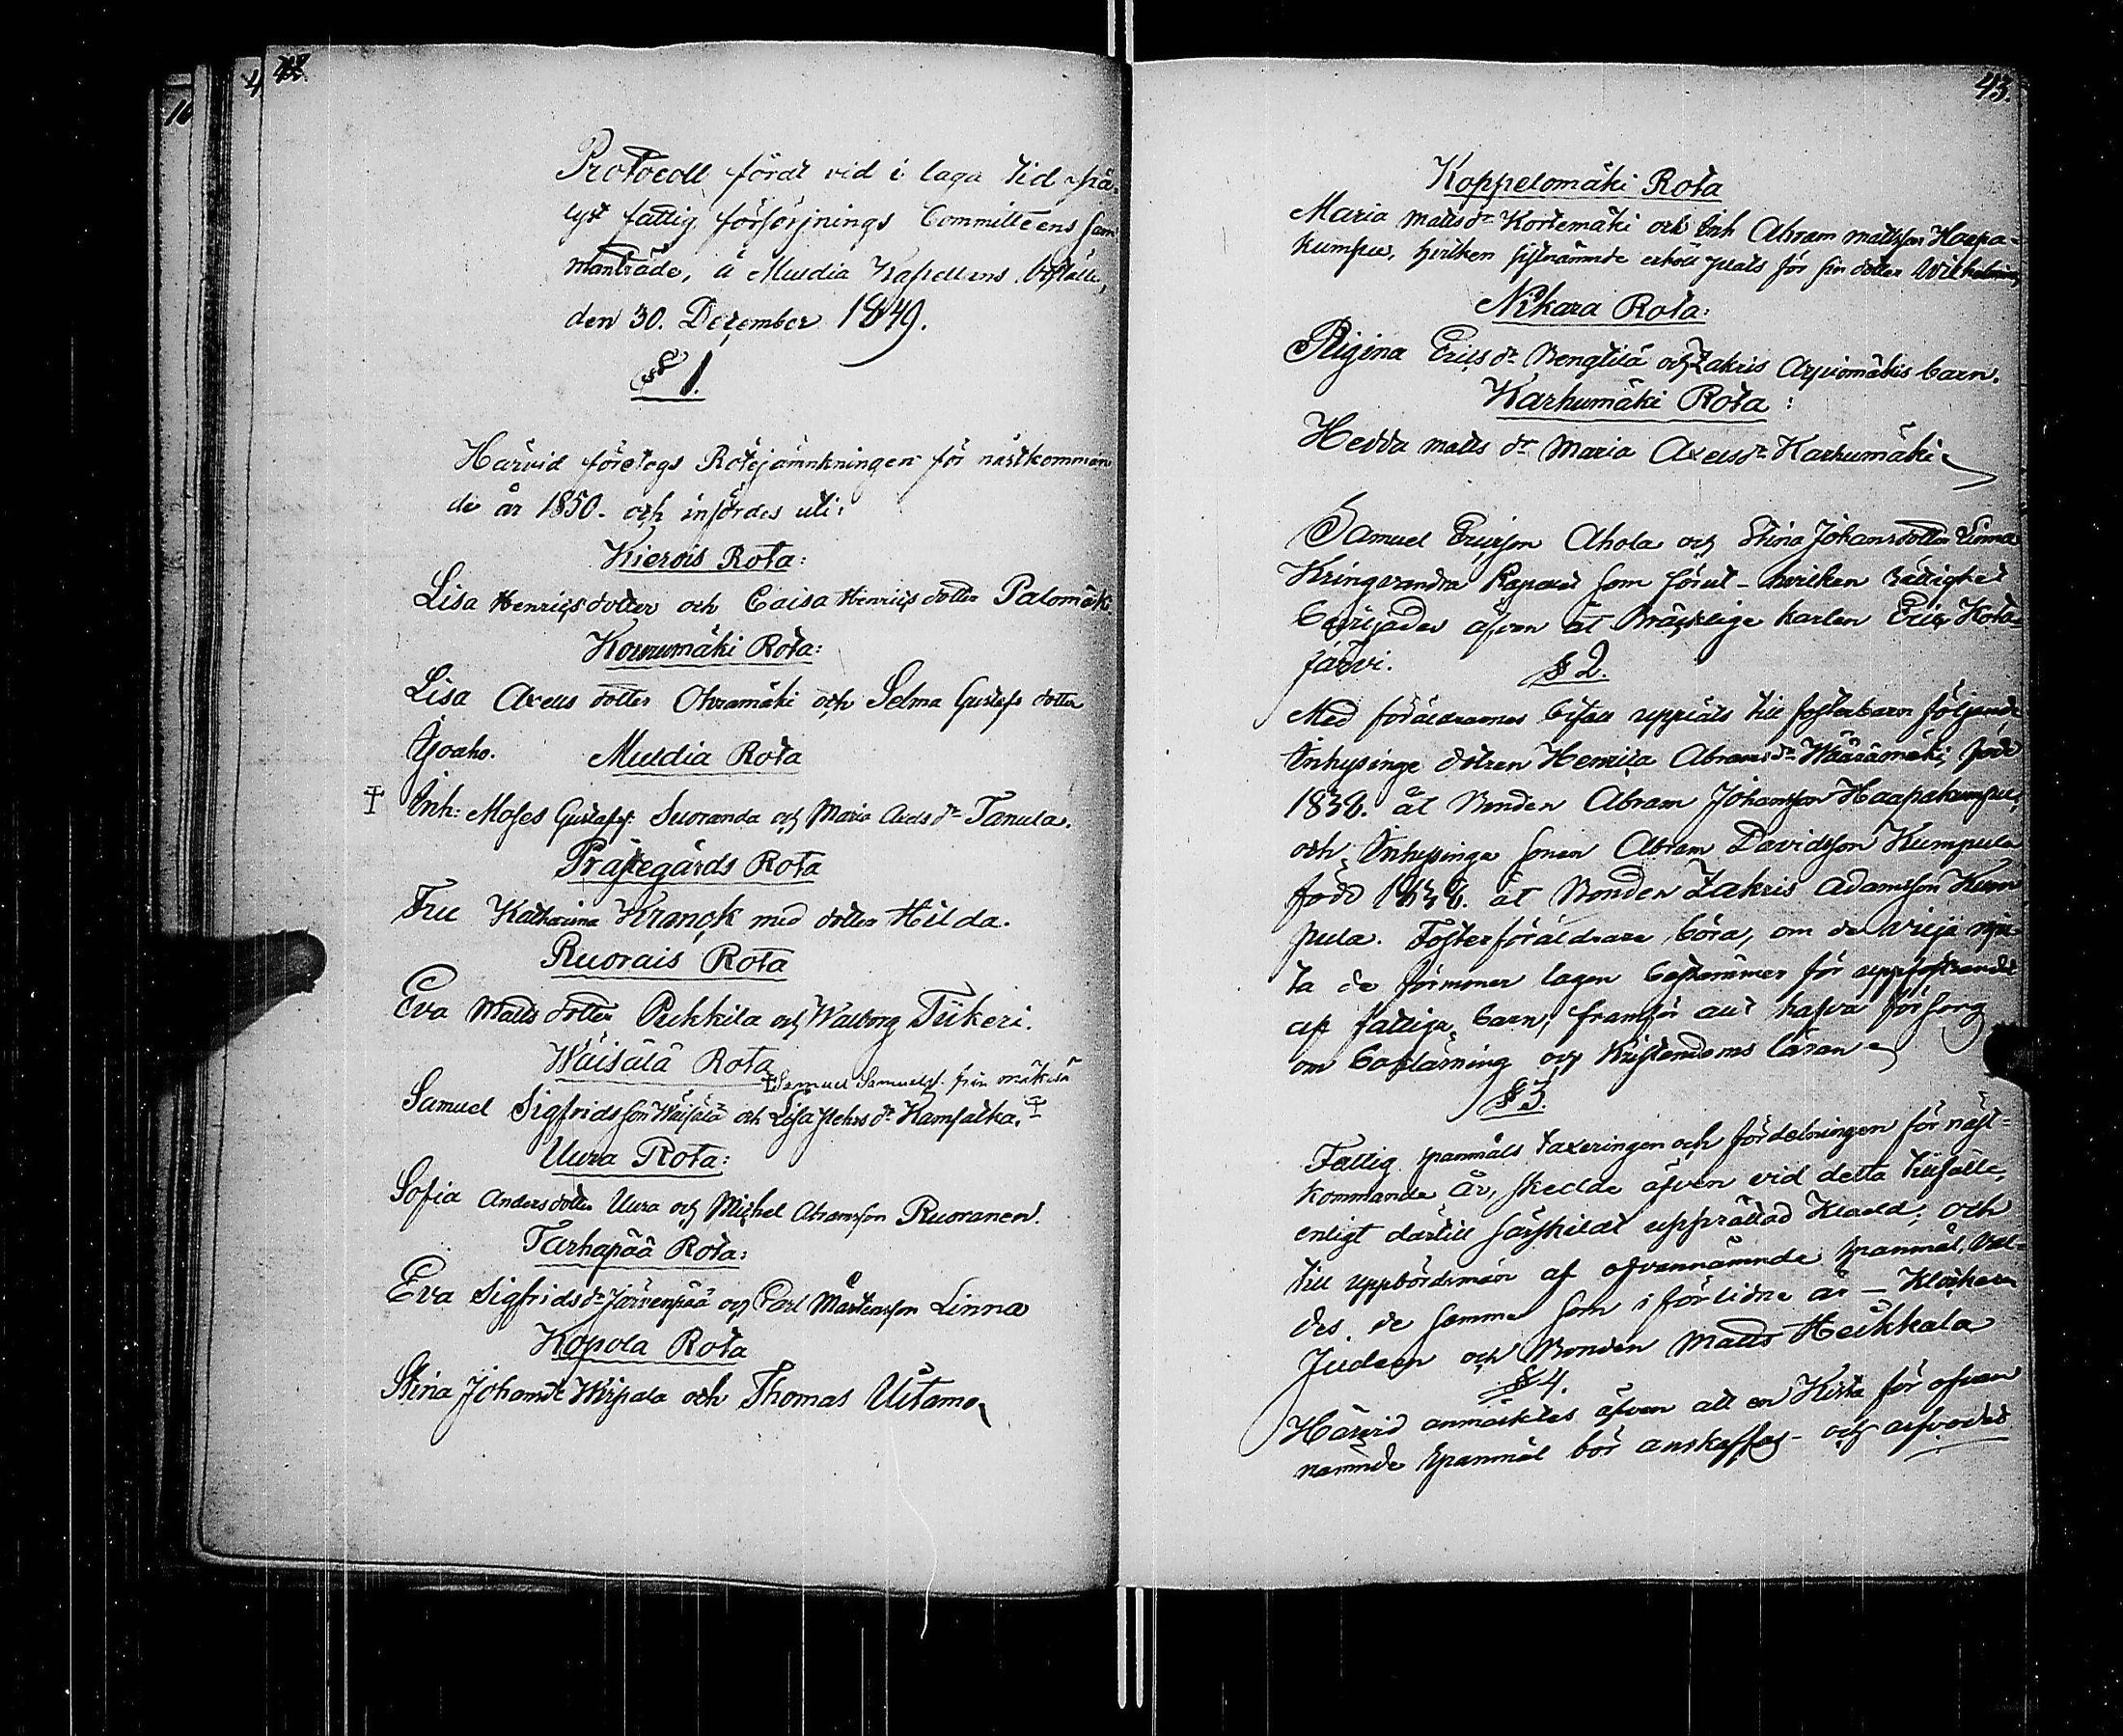 42.
Protocoll fördt vid i laga tid på-
lyst fattig försörjnings Committéens sam
manträde, å Muldia Kapellans boställe,
den 30. December 1849.
§ 1.
Härvid företogs Rotejämnkningen för nästkomman
de år 1850. och infördes uti:
Kierois Rota:
Lisa Henricsdotter och Caisa Henricsdotter Palomäk
Kornumäki Rota:
Lisa Axels dotter Ohramäki och Selma Gustafs dotter
Isoaho.
Muldia Rota
Inh: Moses Gustafss. Suoranda och Maria Axelsdr Tanula.
Prästegårds Rota
Fru Katharina Kranck med dotter Hilda.
Ruorais Rota
Eva Matts dotter Pukkila och Walborg Tiikeri.
Wäisälä Rota
Samuel Samuelss. från
Samuel Sigfridsson Wäisälä och Lisa Pehrsdr Kamsatka.
Uura Rota:
Sofia Andersdotter Uura och Michel Abramsson Ruoranen.
Tarhapää Rota:
Eva Sigfridsdr Järvenpää och Carl Mårtensson Linna
Kopola Rota
Stina Johansdr Kirpala och Thomas Uitamo
43.
Koppelomäki Rota
Maria Mattsdr Kortemäki och Inh Abram Mattsson Haapa-
kumpu, hvilken sistnämnde erhöll plats för sin dotter Wilhelmina,
Nikara Rota:
Regina Ericsdr Bengtilä och Zakris Arpiomäkis barn.
Karhumäki Rota:
Hedda Matts dr Maria Axelsdr Karhumäki
Samuel Ericsson Ahola och Stina Johansdotter Linna
Kringvandra Kapellet som förut – hvilken rättighet
beviljades äfven åt bräcklige karlen Eric Kota-
järvi.
§ 2.
Med föräldrarnes bifall uppläts till fosterbarn följande
Inhysinge dotren Henrica Abramsdr Wäärämäki, född
1838. åt Bonden Abram Johansson Haapakumpu,
och Inhysinge sonen Abram Davidsson Kumpula
född 1838. åt Bonden Zakris Adamsson Kum
pula. Fosterföräldrare böra, om de vilja nju-
ta de förmoner lagen bestämmer för uppfostrandet
af fattiga barn, framför allt hafva försorg
om boklärning och Kristendoms läran
§ 3.
Fattig spanmåls taxeringen och fördelningen för näst-
kommande år, skedde äfven vid detta tillfälle,
enligt dartill särskildt upprättad Kladd; och
till uppbördsmän af ofvannämnde spanmål, val-
des de samma som i förlidne år – Klockaren
Judeen och Bonden Matts Heikkala
§ 4.
Härvid anmärktes äfven att en Kista för ofvan
nämnde spanmål bör anskaffas – och arfvodet